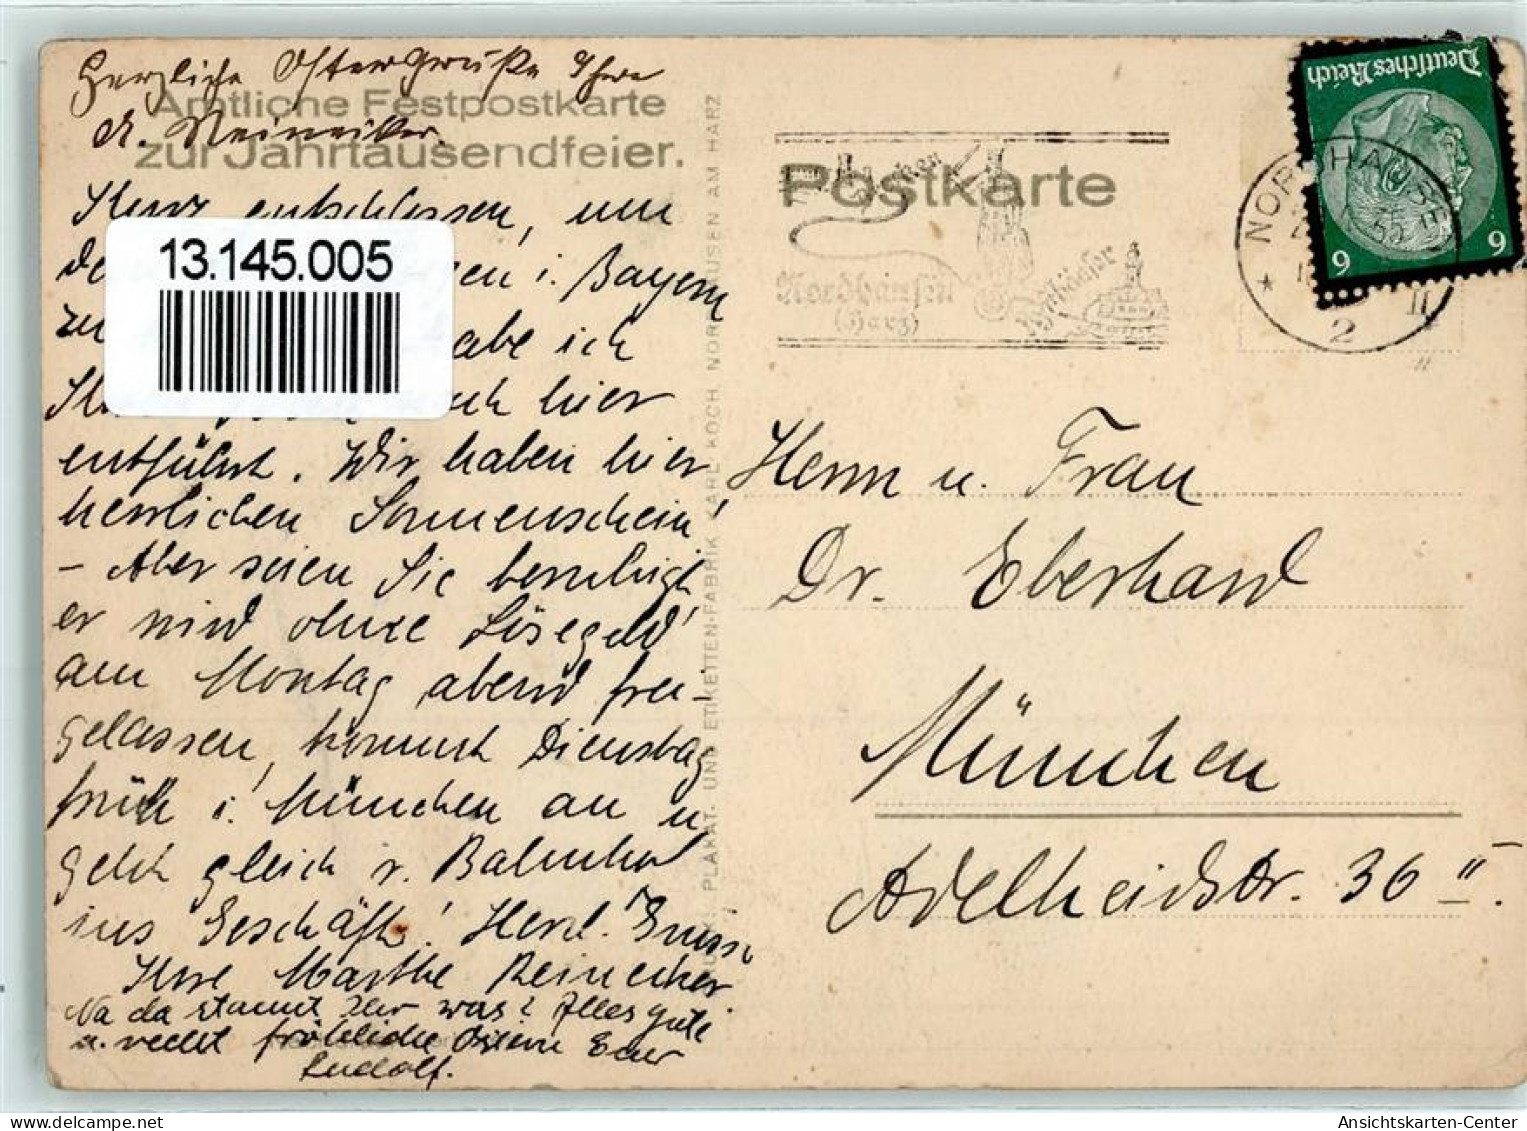 Herzliche Ostergrüße Ihre
Amtliche Festpostkarte
A. Reinecker.
zur Jahrtausendfeier.
Kurz entschlossen, um
i. Bayern
zu habe ich
hier
entführt. Wir haben hier
herrlichen Sonnenschein!
- Aber seien Sie beruhigt
er wird ohne Lösegeld
am Montag abend frei-
gelassen, kommt Dienstag
früh i. München an u.
geht gleich v. Bahnhof
ins Geschäft! Herzl. Grüsse
Ihre Marthe Reinecker
Na da staunt Ihr was? Alles gute
u. recht fröhliche Ostern Euer
Rudolf.
13.145.005
PLAKAT- UND ETIKETTEN-FABRIK KARL KOCH, NORDHAUSEN AM HARZ
Postkarte
Nordhausen
(Harz)
Kyffhäuser
NORDHAUSEN
35
2
II
Deutsches Reich
6 6
Herrn u. Frau
Dr. Eberhard
München
Adelheidstr. 36 II.
Ansichtskarten-Center